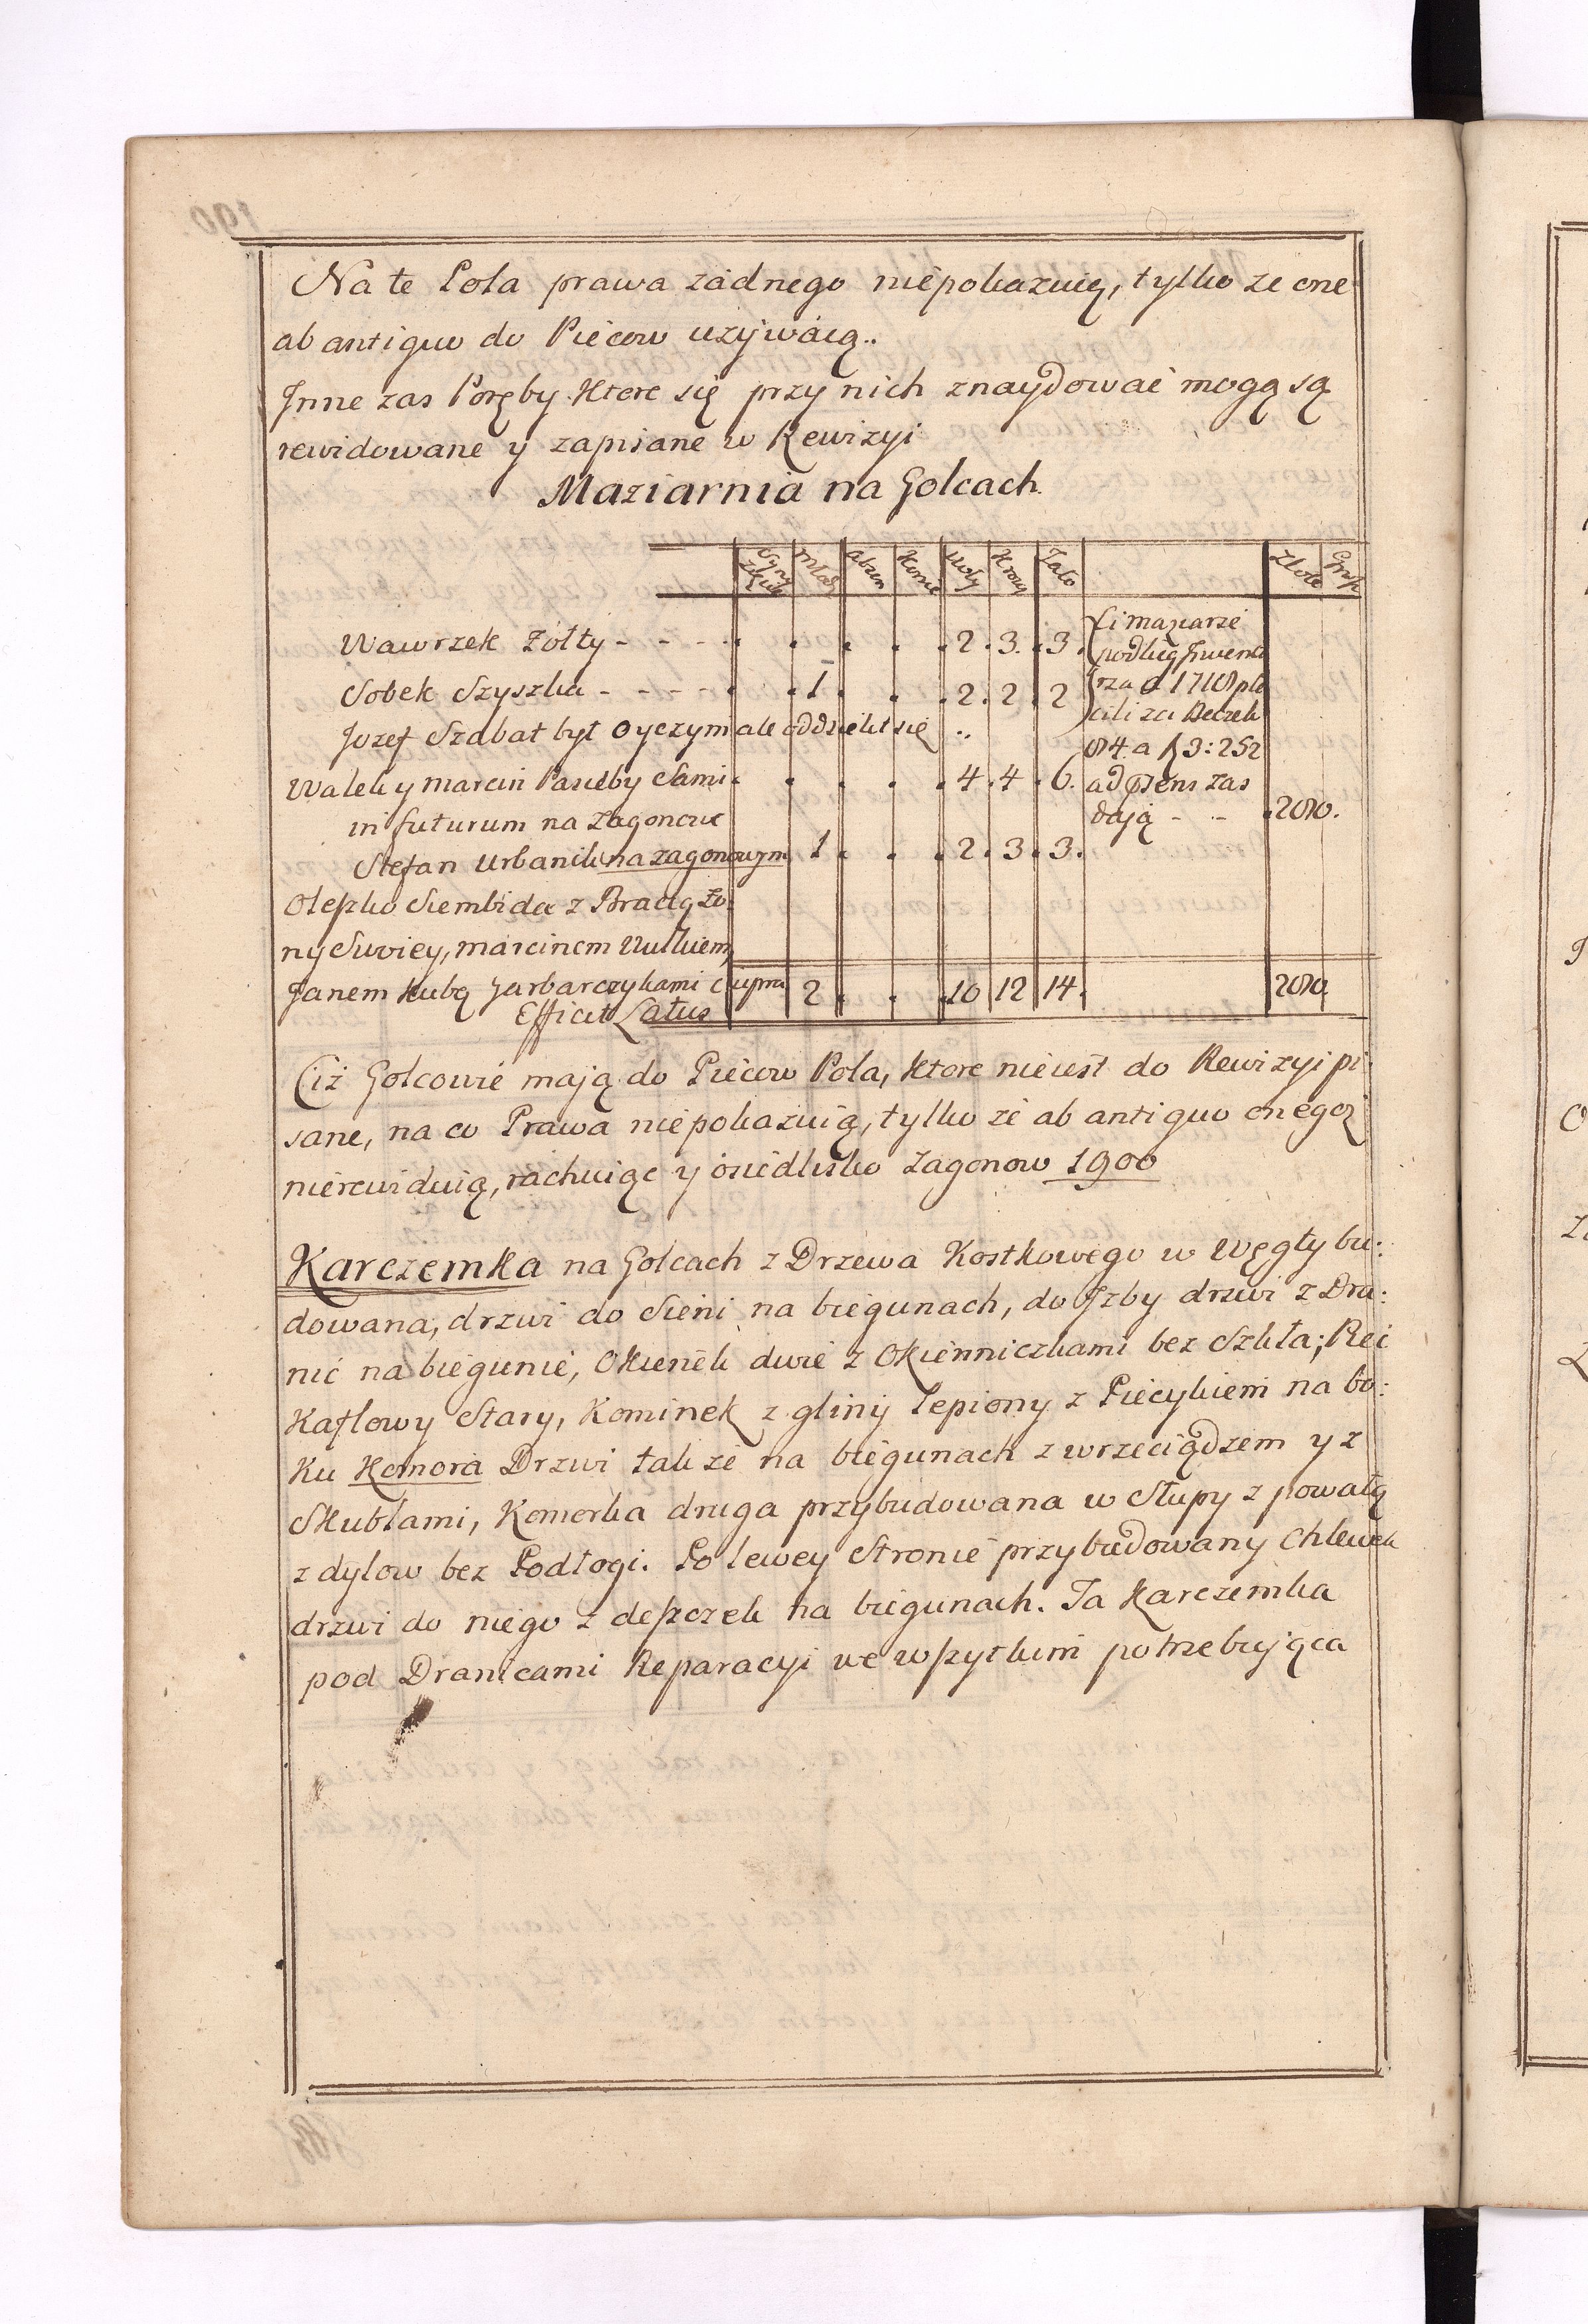 Na te Pola prawa zadnego niepokazuią, tylko ze one
ab antiquo do Piecow uzywaią..
Inne zas Poręby ktore się przy nich znaydować mogą są
rewidowane y zapisane w Rewizyi
Maziarnia na Golcach.
Woły Krow Jało Złote
Wawrzek Zołty - - - - . . . . . 2. 3. 3. Ci maziarze
podług Inwenta
Sobek Szyszka - - - - . 1 . . . 2. 2. 2 rza płacili za Beczek
Jozef Szabat był Oyczym ale oddzielił się ..
Walek y Marcin Pasieby Sami . . . . . 4. 4. 6. ad præns zas
in futurum na zagonowe dają - -
Stefan Urbanik na zagonowym 1 . . . 2. 3. 3.
Oleszko Siembida z Bracią Zo:
ny Swoiey, Marcinem Wulkiem,
Janem Kubą Garbarczykami c supra 2 . . . 10 12 14.
Efficit Latus
Ciż Golcowie mają do Piecow Pola, ktore nieiest do Rewizyi pi:
sane, na co Prawa niepokazuią, tylko ze ab antiquo onego
nierewiduią, rachuiąc y osiedlisko Zagonow 1900
Karczemka na Golcach z Drzewa Kostkowego w Węgły bu:
dowana, drzwi do Sieni na biegunach, do Izby drzwi z Dra:
nic na biegunie, Okienek dwie z Okienniczkami bez Szkła; Piec
Kaflowy Stary, Kominek z gliny lepiony z Piecykiem na bo:
ku Komora Drzwi także na biegunach z wrzeciądzem y z
Skublami, Komorka druga przybudowana w Słupy z powałą
z dylow bez Podłogi. Po lewey Stronie przybudowany Chlewek
drzwi do niego z deszczek na biegunach. Ta Karczemka
pod Dranicami Reparacyi we wszytkim potrzebująca